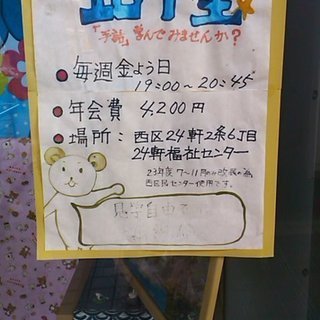 「手話」学んでみませんか？
● 毎週金よう日
19:00～20:45
● 年会費 4,200円
● 場所： 西区24軒2条6丁目
24軒福祉センター
23年度7～11月の改装の為、
西区民センター使用です。
見学自由